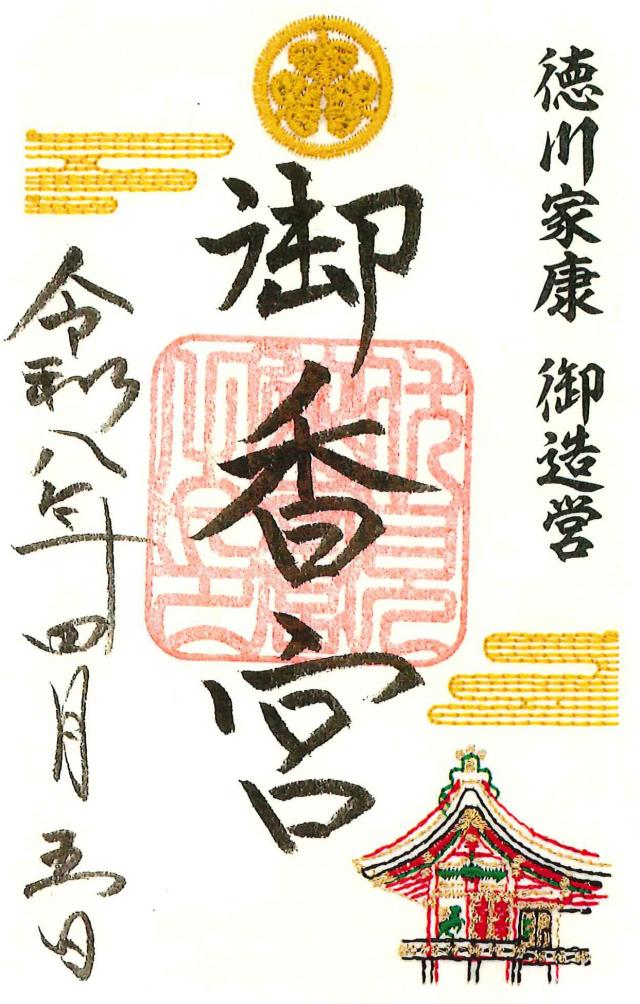 徳川家康 御造営
御香宮
令和八年四月五日